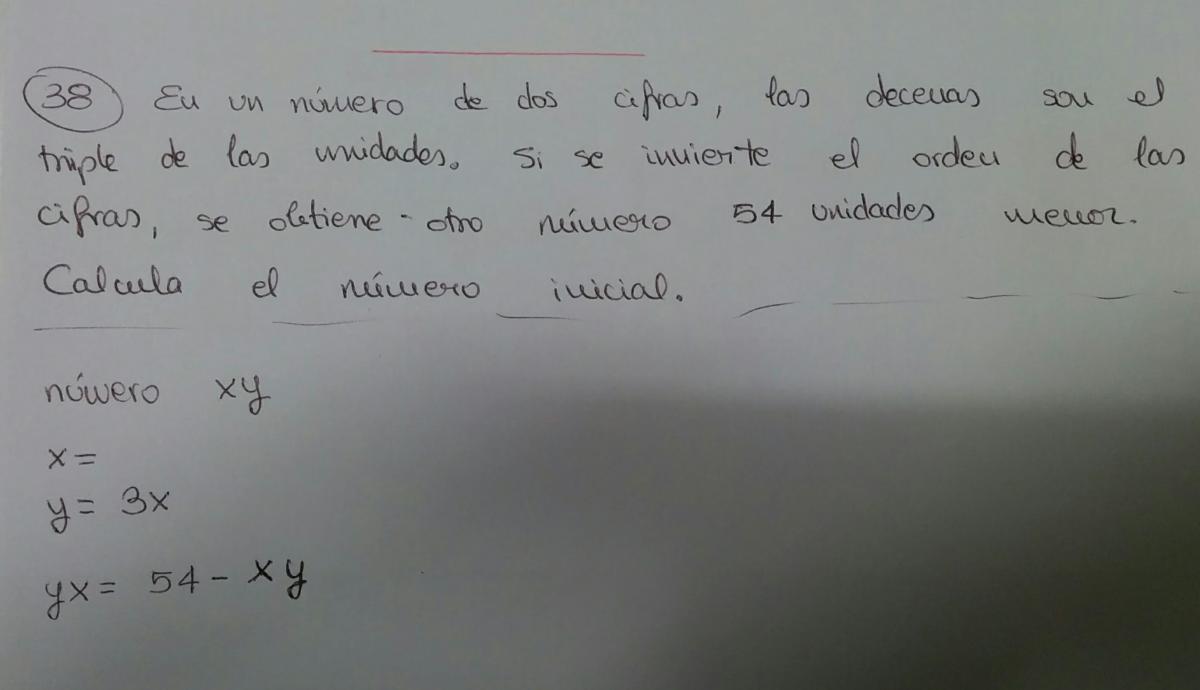 38 En un número de dos cifras, las decenas son el
triple de las unidades. Si se invierte el orden de las
cifras, se obtiene otro número 54 unidades menor.
Calcula el número inicial.
número xy
x =
y = 3x
yx = 54 - xy